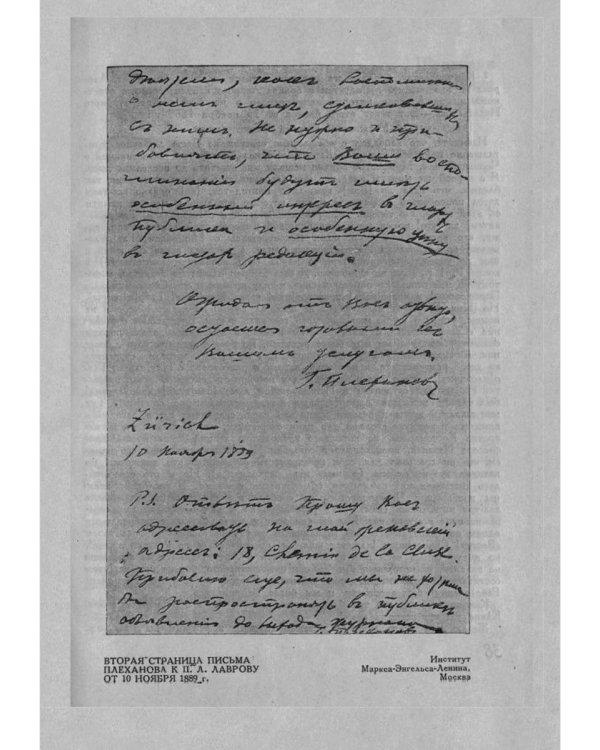 о немъ лицъ,
съ нимъ. Не нужно и при-
бавлять, что Ваши воспо-
минанія будутъ имѣть
особенный интересъ в глазахъ
публики и особенную цѣну
в глазахъ редакціи.
Ожидая отъ Васъ отвѣта,
остаюсь готовый къ
Вашимъ услугамъ.
Г. Плехановъ
Zürich
10 Ноября 1889
P.S. Отвѣтъ прошу Васъ
адресовать на мой женевскій
адресъ: 18, Chemin de la Cluse.
Прибавлю еще, что мы не
распространять в публикѣ
объявленія до выхода журнала
ВТОРАЯ СТРАНИЦА ПИСЬМА
ПЛЕХАНОВА К П. Л. ЛАВРОВУ
ОТ 10 НОЯБРЯ 1889 г.
Институт
Маркса-Энгельса-Ленина,
Москва